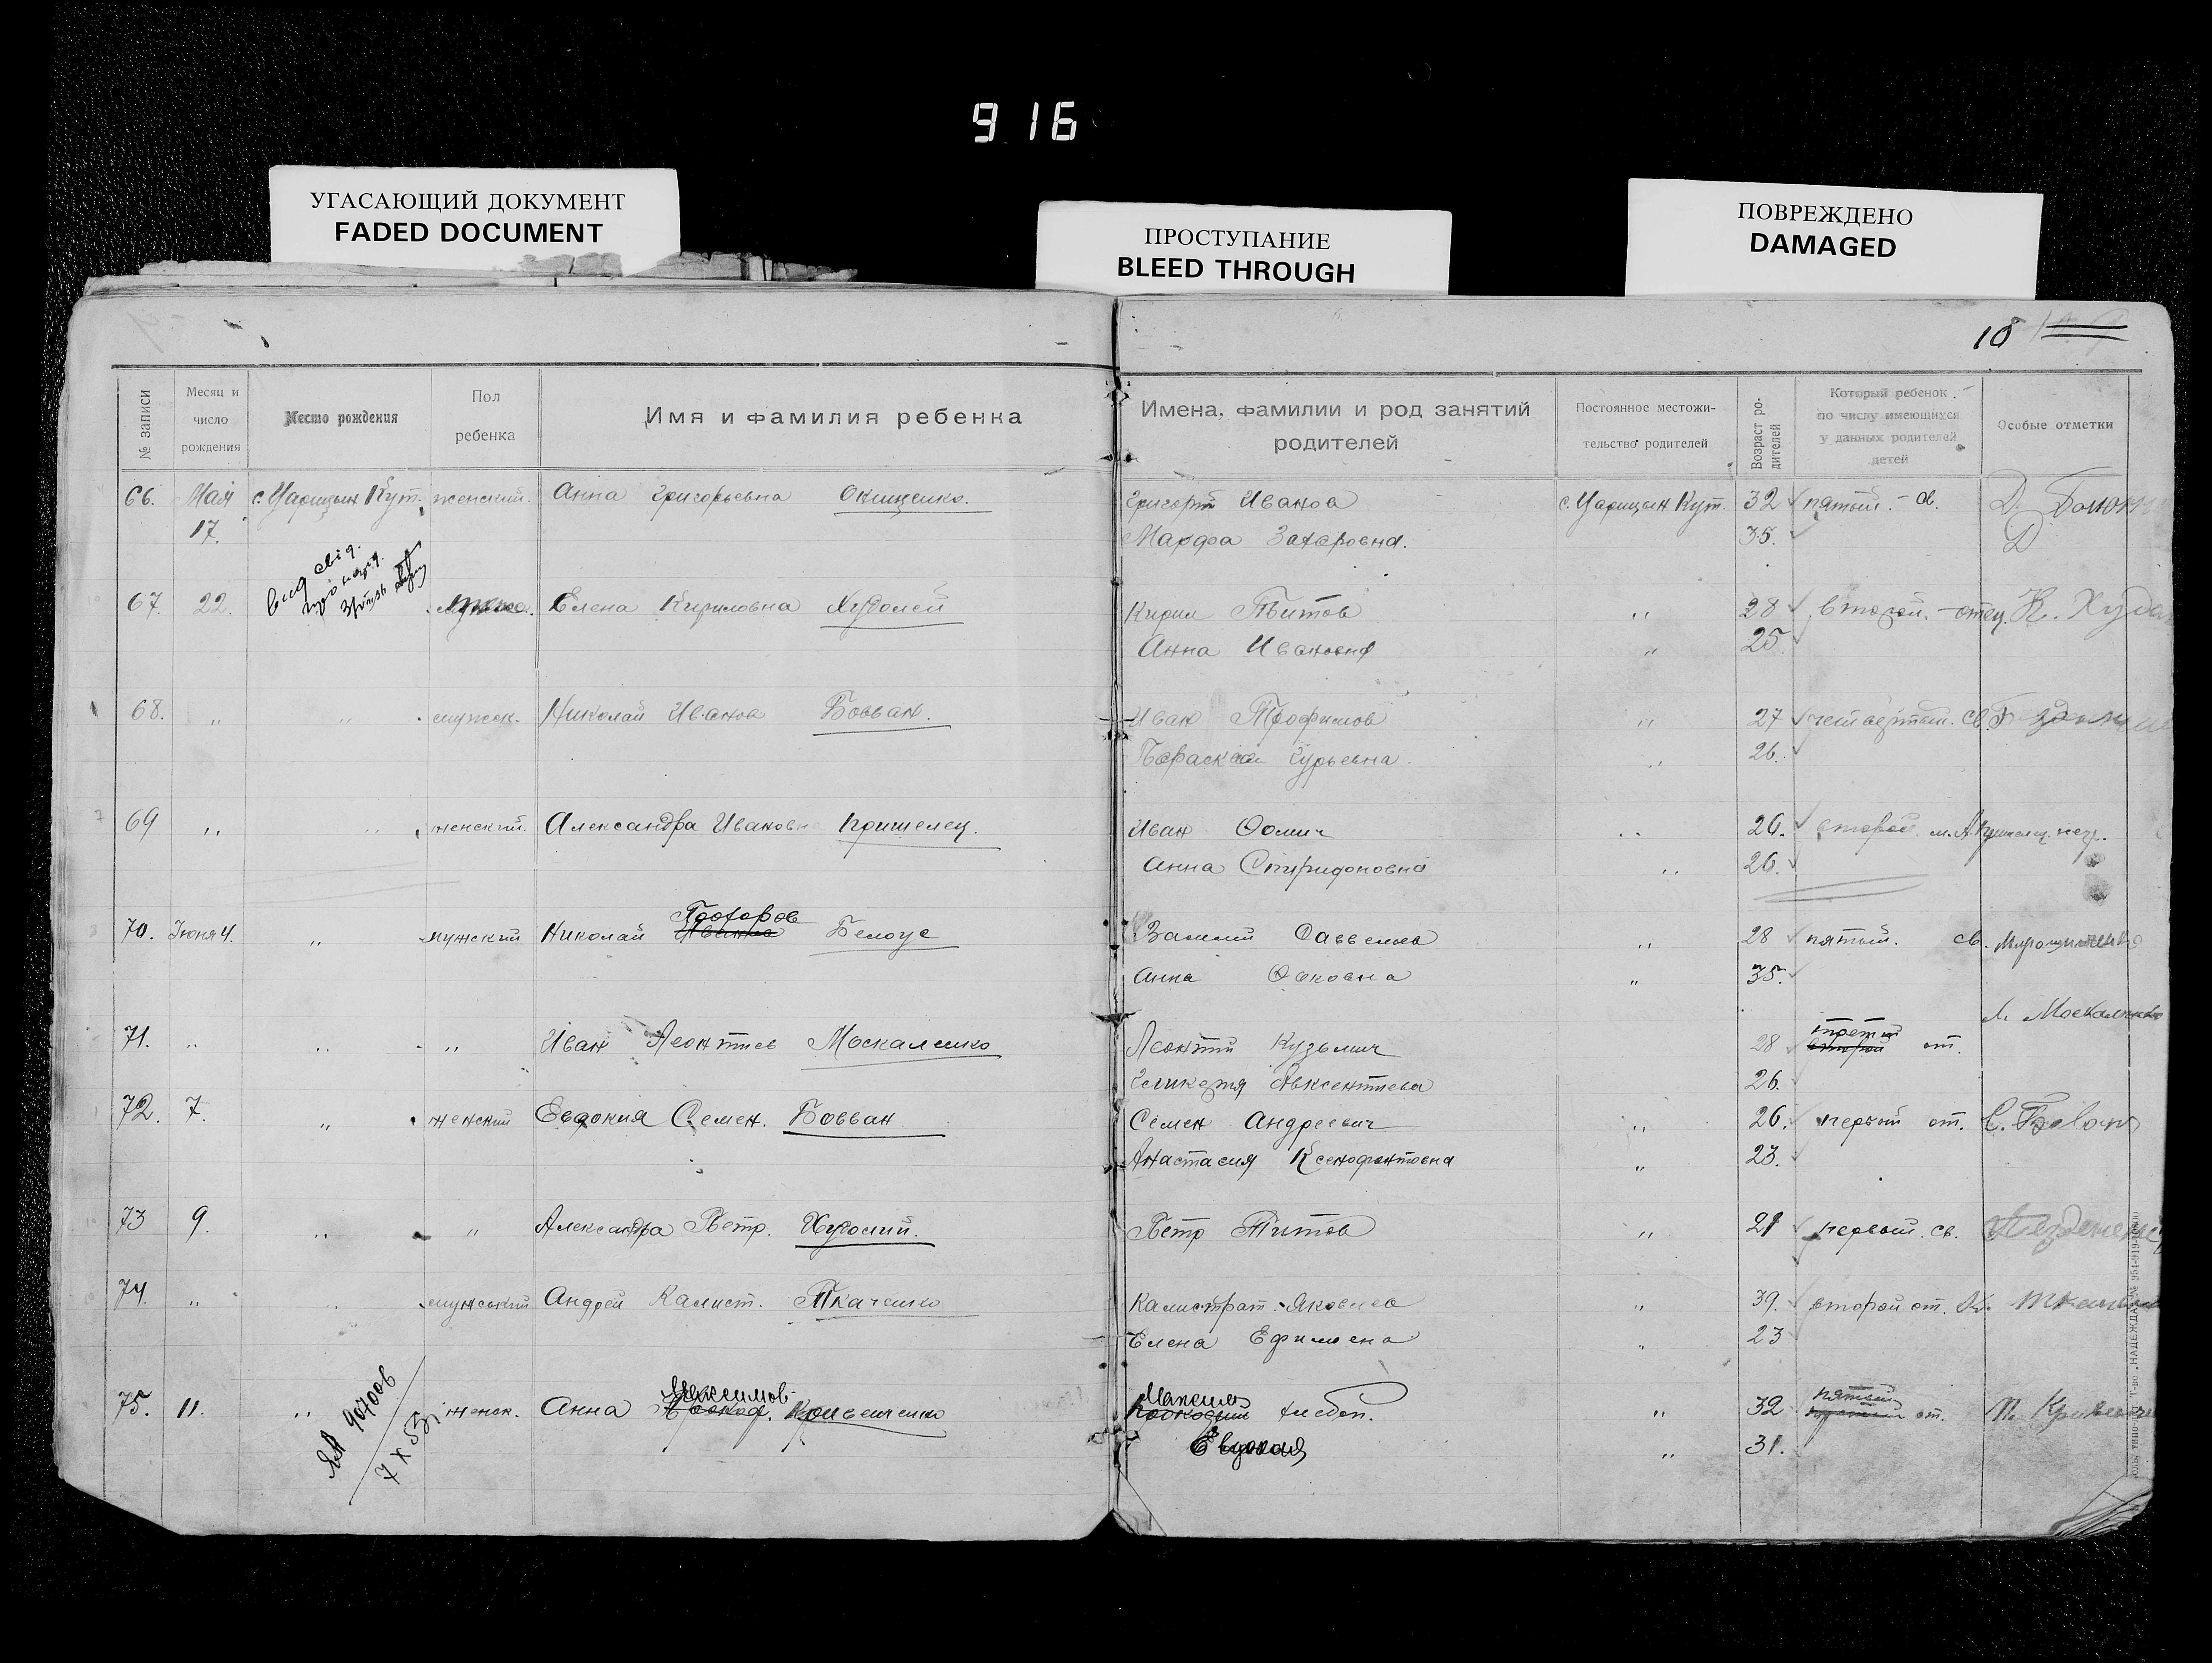 916
УГАСАЮЩИЙ ДОКУМЕНТ
FADED DOCUMENT
ПРОСТУПАНИЕ
BLEED THROUGH
ПОВРЕЖДЕНО
DAMAGED
10
№ записи
Месяц и число рождения
Место рождения
Пол ребенка
Имя и фамилия ребенка
Имена, фамилии и род занятий родителей
Постоянное местожительство родителей
Возраст родителей
Который ребенок по числу имеющихся у данных родителей детей
Особые отметки
66. Мая с. Царицын Кут. женский. Анна Григорьевна Онищенко. Григорий Иванов с. Царицын Кут. 32 пятый. - св. Д.
17. Марфа Захаровна. 35.
67. 22. Елена Кириловна Худолей Кирил Титов " 28 второй. - отец. К.
Анна Ивановна " 25
68. " " мужск. Николай Иванов Бовван. Иван Трофимов " 27 четвертый. св.
Параскева Гурьевна. " 26.
69 " " женский. Александра Ивановн Пришелец. Иван Фомич " 26. второй м.
Анна Спиридоновна " 26.
Прохоров
70. Июня 4. " мужский Николай Белоус Василий Савельев " 28 пятый. св. Мирошниченко
Анна " 35.
Л. Москаленко
третий
71. " " " Иван Леонтиев Москаленко Леонтий Кузьмич 28 второй от.
Гликерия Авксентиева 26.
72. 7. " женский Евдокия Семен. Бовван Семен Андреевич " 26. первый от. С.
Анастасия Ксенофонтовна " 23.
73 9. " " Александра Петр. Худолий. Петр Титов " 21 первый. св.
74. " " мужський Андрей Калист. Ткаченко Калистрат Яковлев " 39. второй от. К.
Елена Ефимовна " 23
Максимов- Максим пятый
75. 11. " женск. Анна Прокоф. Кривенченко " 32 от.
Евдокия " 31.
ЯП 907006